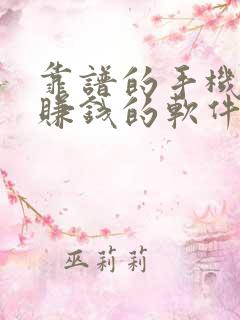 靠譜的手機
賺錢的軟件
巫莉莉